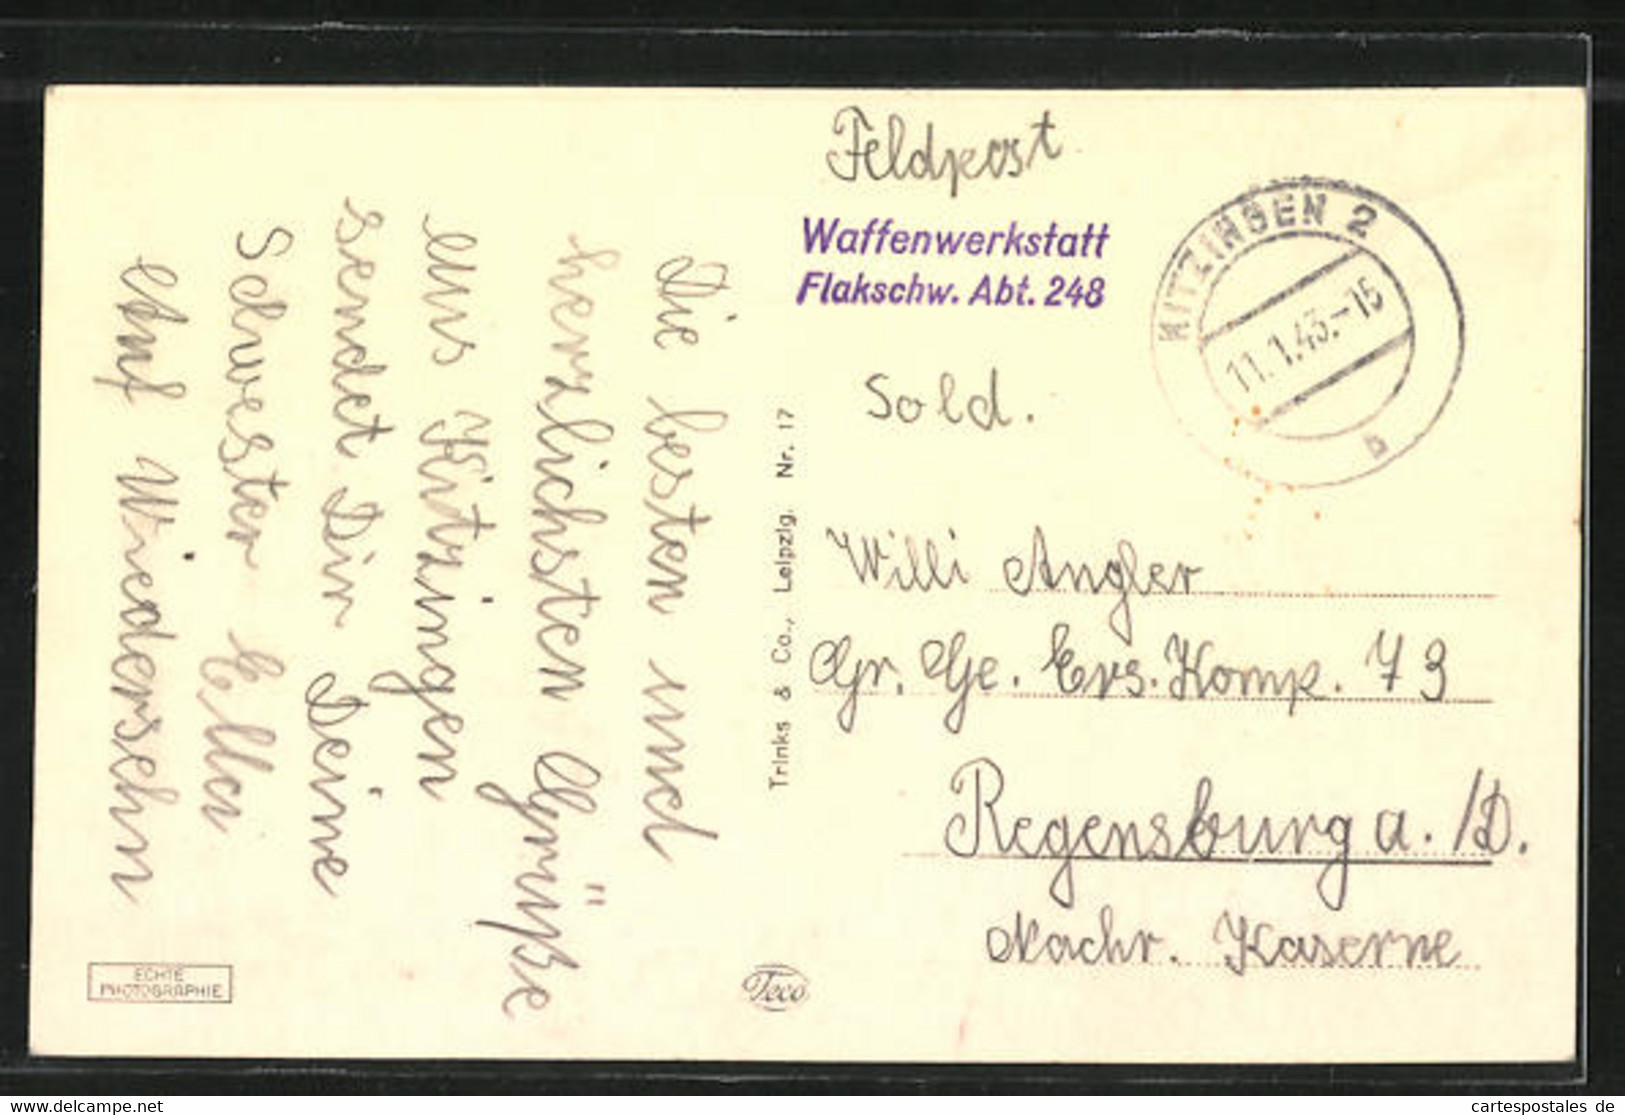 Feldpost
Waffenwerkstatt
Flakschw. Abt. 248
KITZINGEN 2
11.1.43.-15
b
Sold.
Willi Angler
Gr. Ge. Ers. Komp. 73
Regensburg a./D.
Nachr. Kaserne
Die besten und
herzlichsten Grüße
aus Kitzingen
sendet Dir Deine
Schwester Ella
Auf Wiedersehn
Trinks & Co., Leipzig. Nr. 17
ECHTE
PHOTOGRAPHIE
Teco
cartespostales de